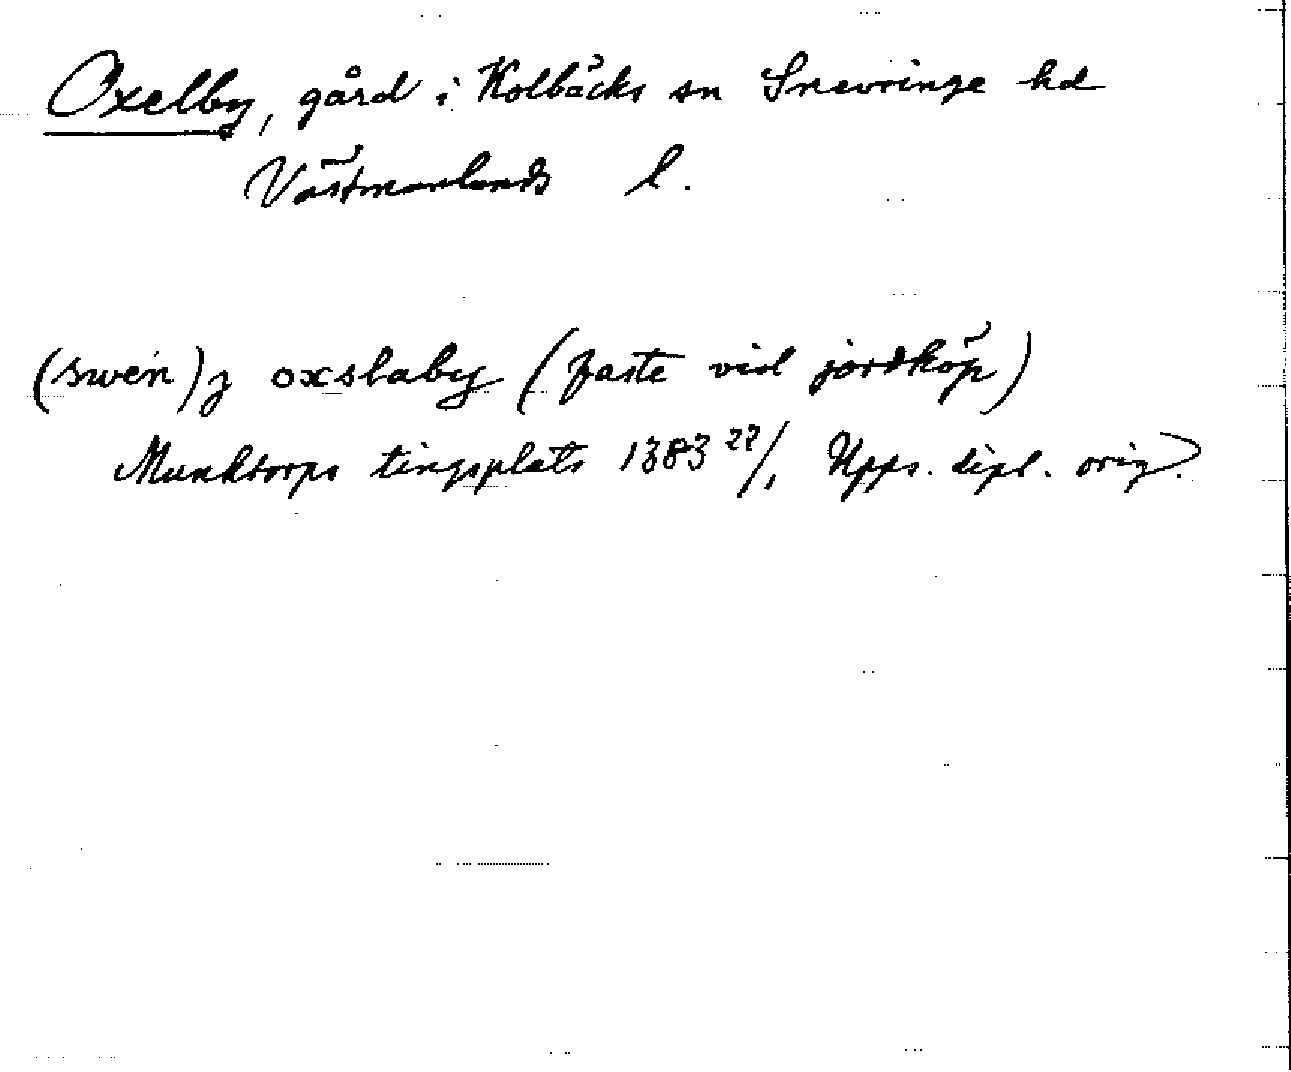 Oxelby, gård i Kolbäcks sn Snevringe hd
Västmanlands l.
(swen) j oxslaby (faste vid jordköp)
Munktorps tingsplats 1383 27/1 Upps. dipl. orig.